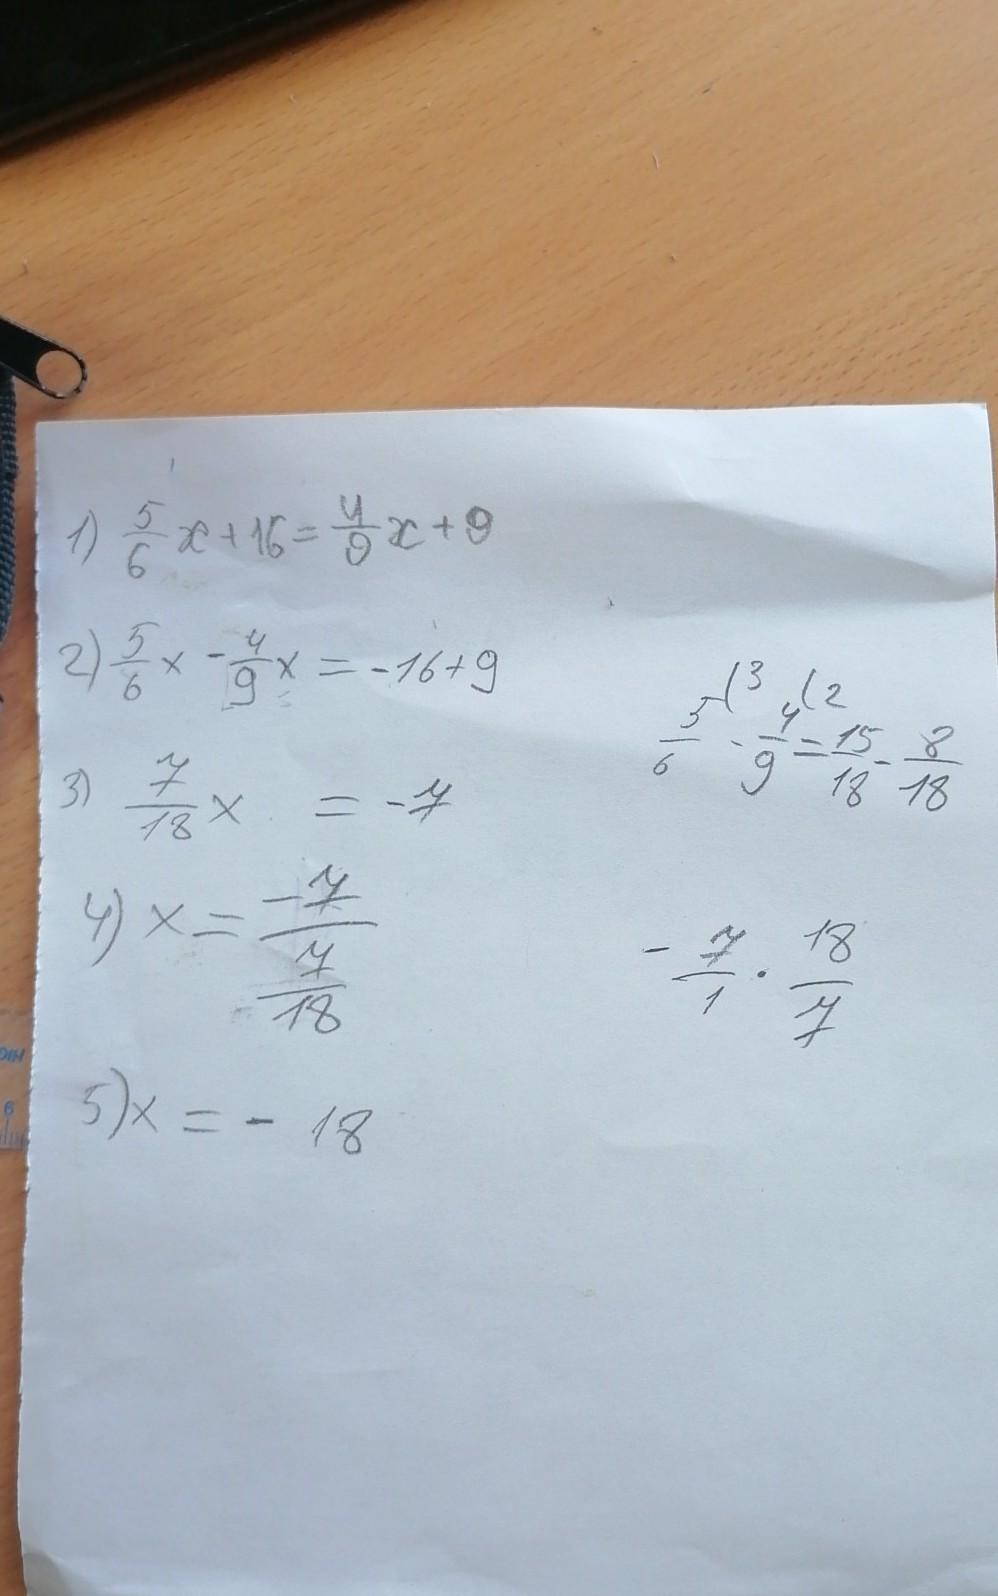 1) 5/6 x + 16 = 4/9 x + 9
2) 5/6 x - 4/9 x = -16 + 9
5/6 (3 - 4/9 (2 = 15/18 - 8/18
3) 7/18 x = -7
4) x = -7 / 7/18
- 7/1 · 18/7
5) x = - 18
6